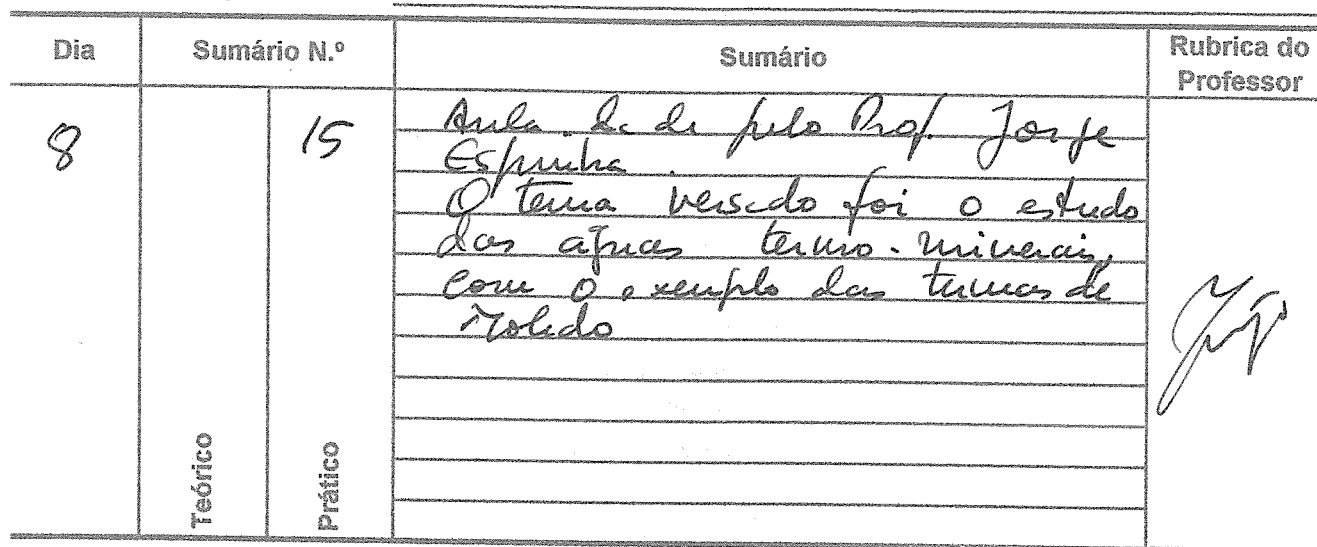 Dia
Sumário N.º
Sumário
Rubrica do
Professor
8
15
Aula dada pelo Prof. Jorge
Espinha.
O tema versado foi o estudo
das águas termo-minerais,
com o exemplo das termas de
Moledo
Teórico
Prático